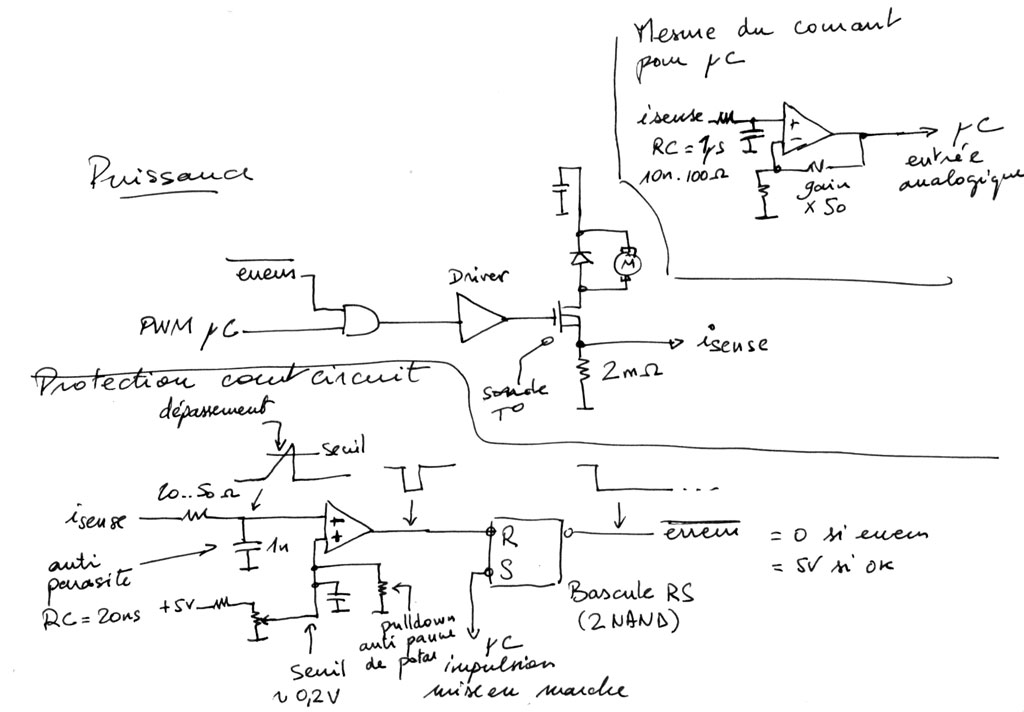 Mesure du courant
pour µC
isense
RC = 1µs
10n.100Ω
+
-
gain
x 50
µC
entrée
analogique
Puissance
erreur
PWM µC
Driver
M
isense
2mΩ
sonde
T°
Protection court circuit
dépassement
seuil
20..50Ω
isense
1n
anti
parasite
RC = 20ns
+5V
+
+
Seuil
~ 0,2V
pulldown
anti panne
de potar
R
S
µC
impulsion
mise en marche
Bascule RS
(2 NAND)
...
erreur = 0 si erreur
= 5V si OK